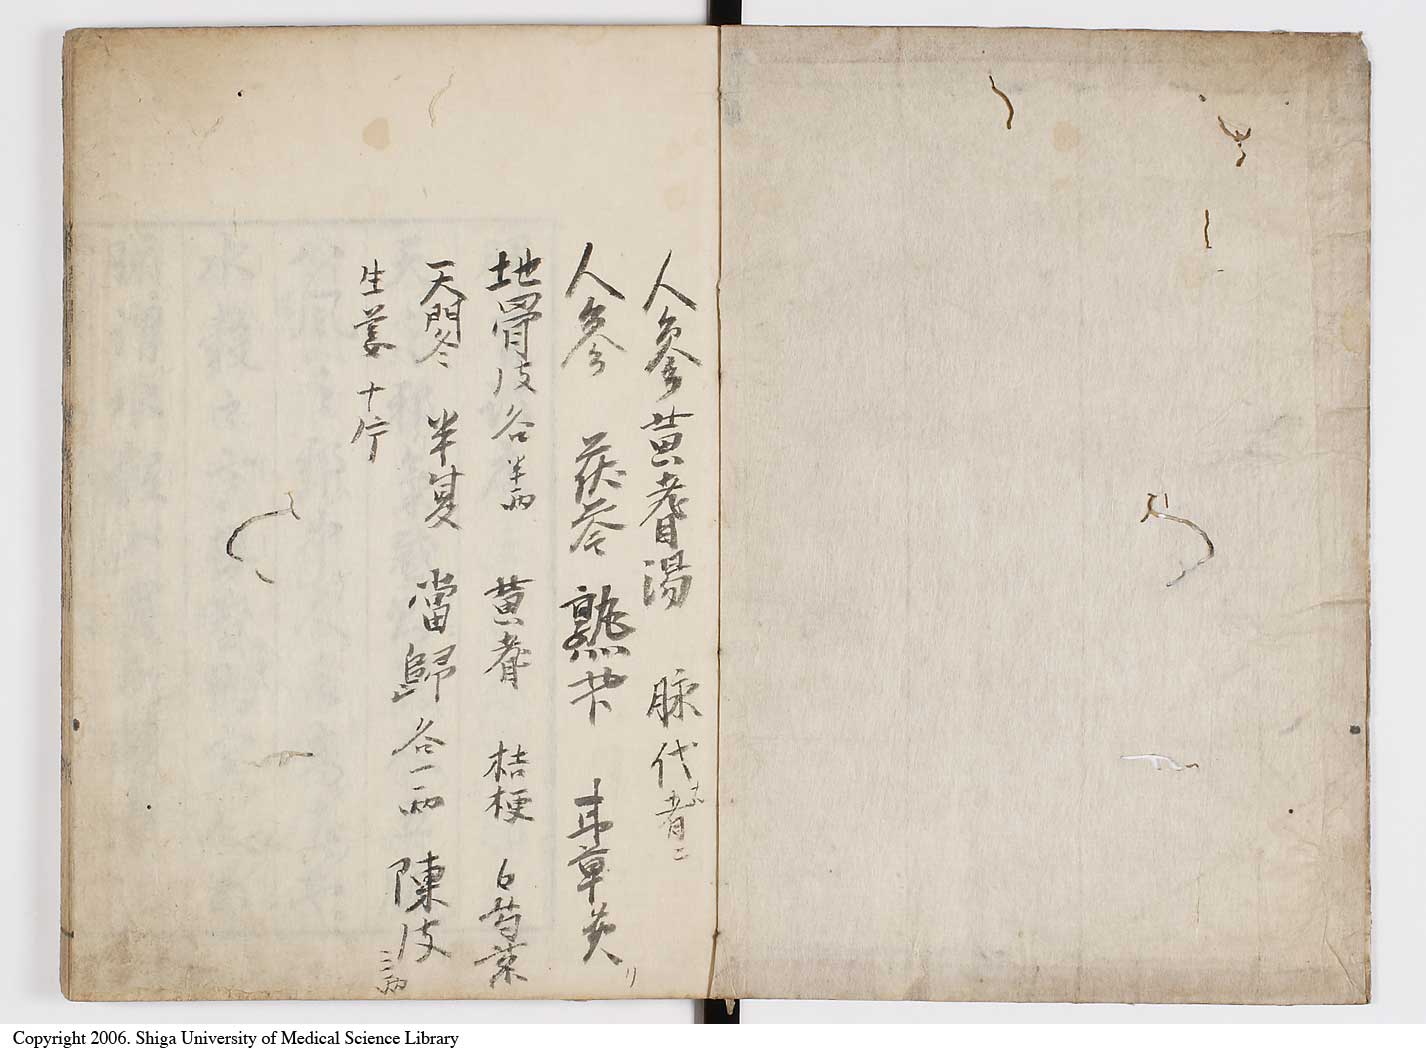 人参黄耆湯 脉代ナル者ニ
人参 茯苓 熟芐 甘草炙
地骨皮各半両 黄耆 桔梗 白芍薬
天門冬 半夏 當歸各一両 陳皮二両
生姜十
Copyright 2006. Shiga University of Medical Science Library